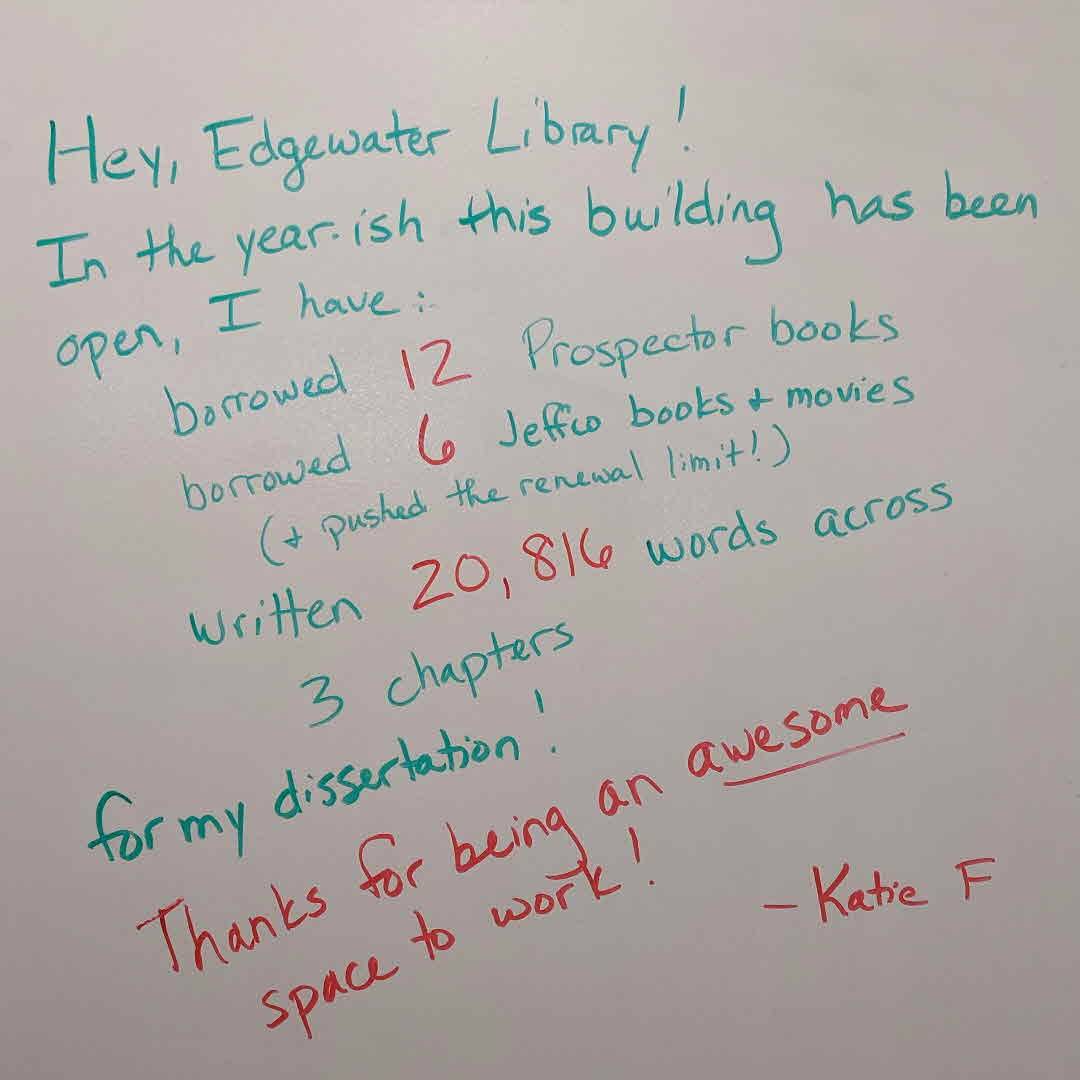 Hey, Edgewater Library!
In the year-ish this building has been
open, I have:
borrowed 12 Prospector books
borrowed 6 Jeffco books + movies
(+ pushed the renewal limit!)
written 20,816 words across
3 chapters
for my dissertation!
Thanks for being an awesome
space to work!
- Katie F